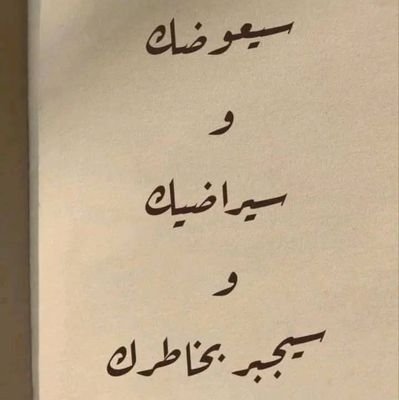 سيعوضك
و
سيراضيك
و
سيجبر بخاطرك